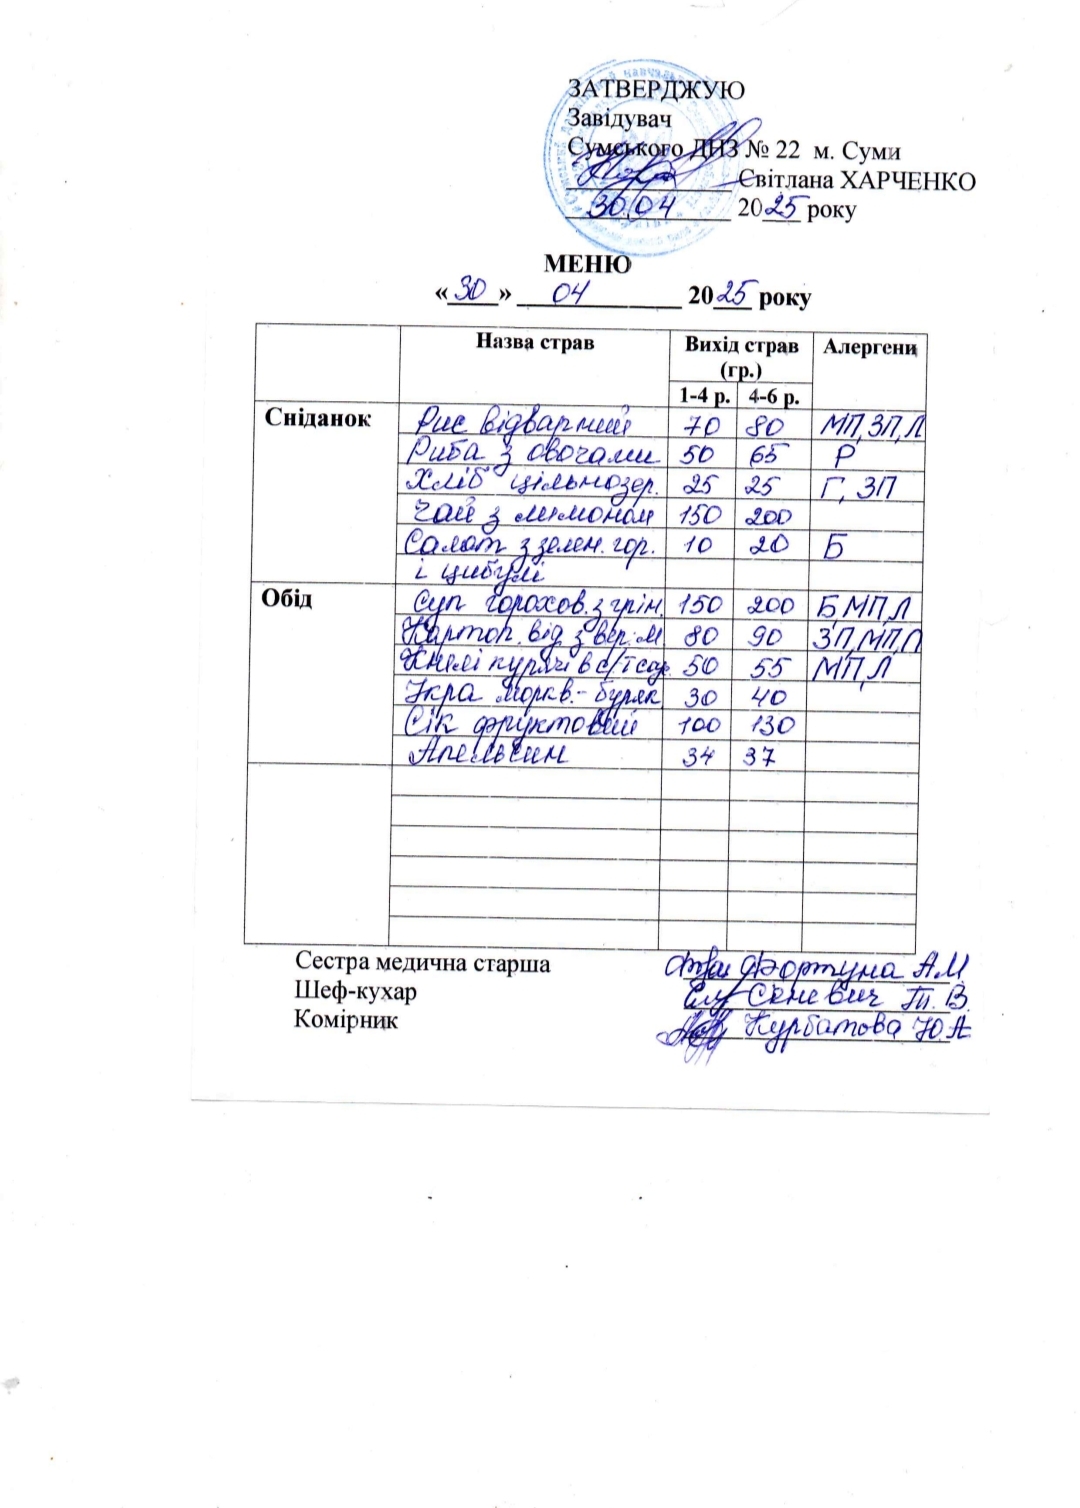 ЗАТВЕРДЖУЮ
Завідувач
Сумського ДНЗ № 22 м. Суми
Світлана ХАРЧЕНКО
30.04 2025 року
МЕНЮ
«30» 04 2025 року
Назва страв Вихід страв (гр.) Алергени
1-4 р. 4-6 р.
Сніданок Рис відварний 70 80 МП,ЗП,Л
Риба з овочами 50 65 Р
Хліб цільнозер. 25 25 Г, ЗП
Чай з лимоном 150 200
Салат з зелен. гор. 10 20 Б
і цибулі
Обід Суп горохов. з грін. 150 200 Б,МП,Л
Картоп. від. з вер. м 80 90 ЗП,МП,Л
Кнелі курячі в с/т соус 50 55 МП,Л
Ікра моркв.- буряк 30 40
Сік фруктовий 100 130
Апельсин 34 37
Сестра медична старша Фортуна А.М.
Шеф-кухар Сеневич Т. В.
Комірник Курбатова Ю.А